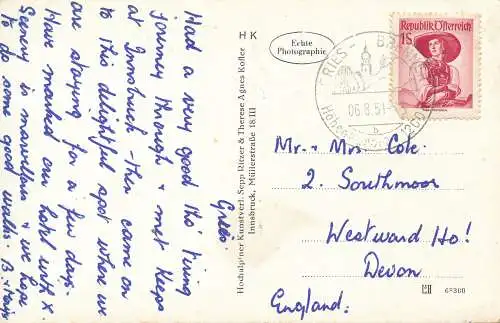 Griës
Had a very good tho' tiring
journey through & met Keeps
at Innsbruck - then came on
to this delightful spot where we
are staying for a few days.
Have marked our hotel with X.
Scenery is marvellous & we hope
to do some good walks.
H K
Echte
Photographie
Hochalpiner Kunstverl. Sepp Ritzer & Therese Agnes Kofler
Innsbruck, Müllerstraße 18/III
Republik Österreich
1S
GRIES - B
06.8.51
b
Mr. & Mrs. Cole.
2. Southmoor
Westward Ho!
Devon
England.